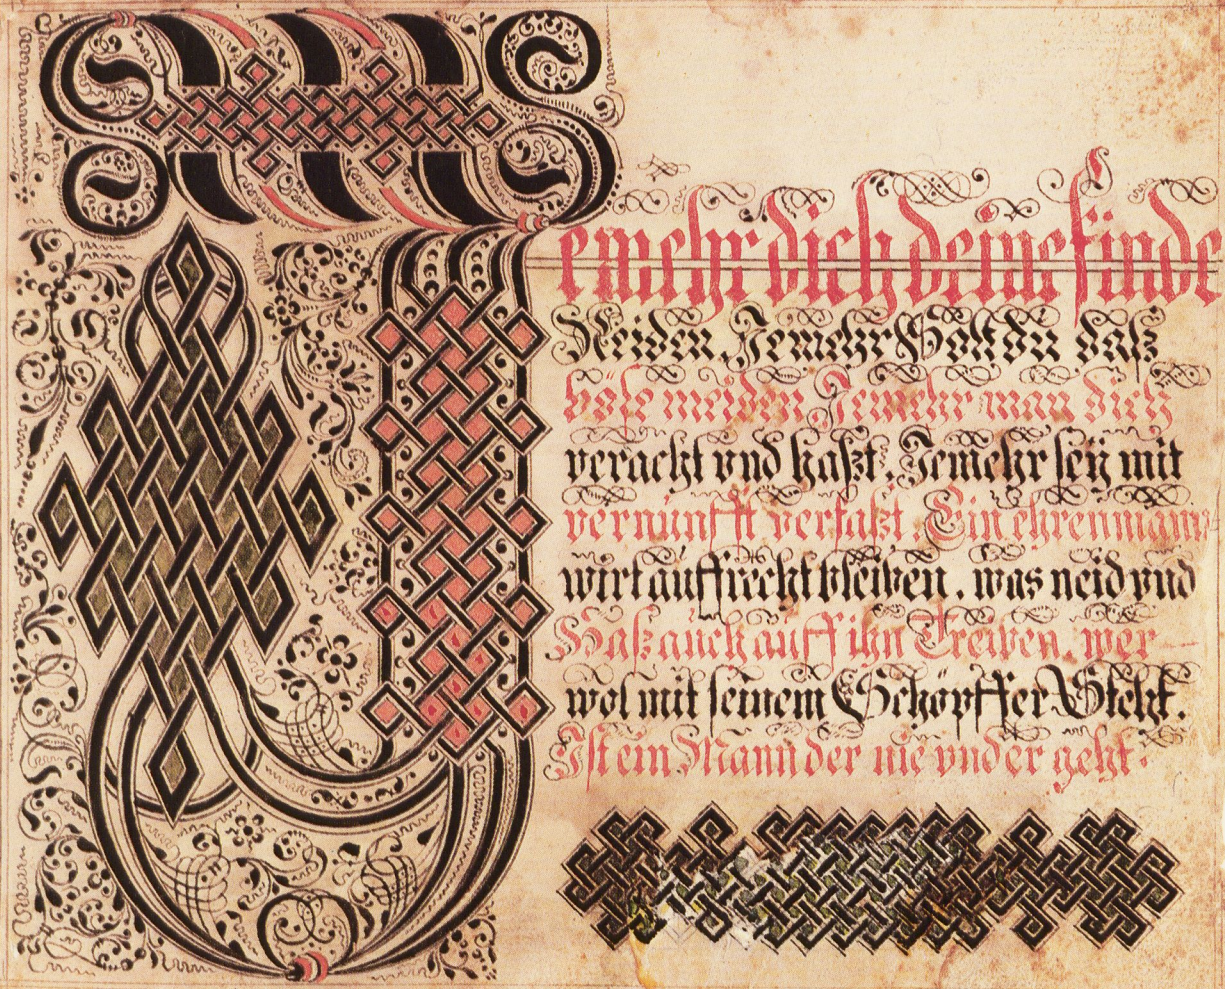 Jemehr dich deine finde
Neiden, Jemehr Solt du daß
böse meiden Jemehr man dich
veracht vnd haßt. Jemehr seÿ mit
vernunfft verfaßt. Ein ehrenmann
wirt auffrecht bleiben. was neid vnd
Haß auch auff ihn Treiben. wer
wol mit seinem Schöpffer Steht.
Ist ein Mann der nie vnder geht.